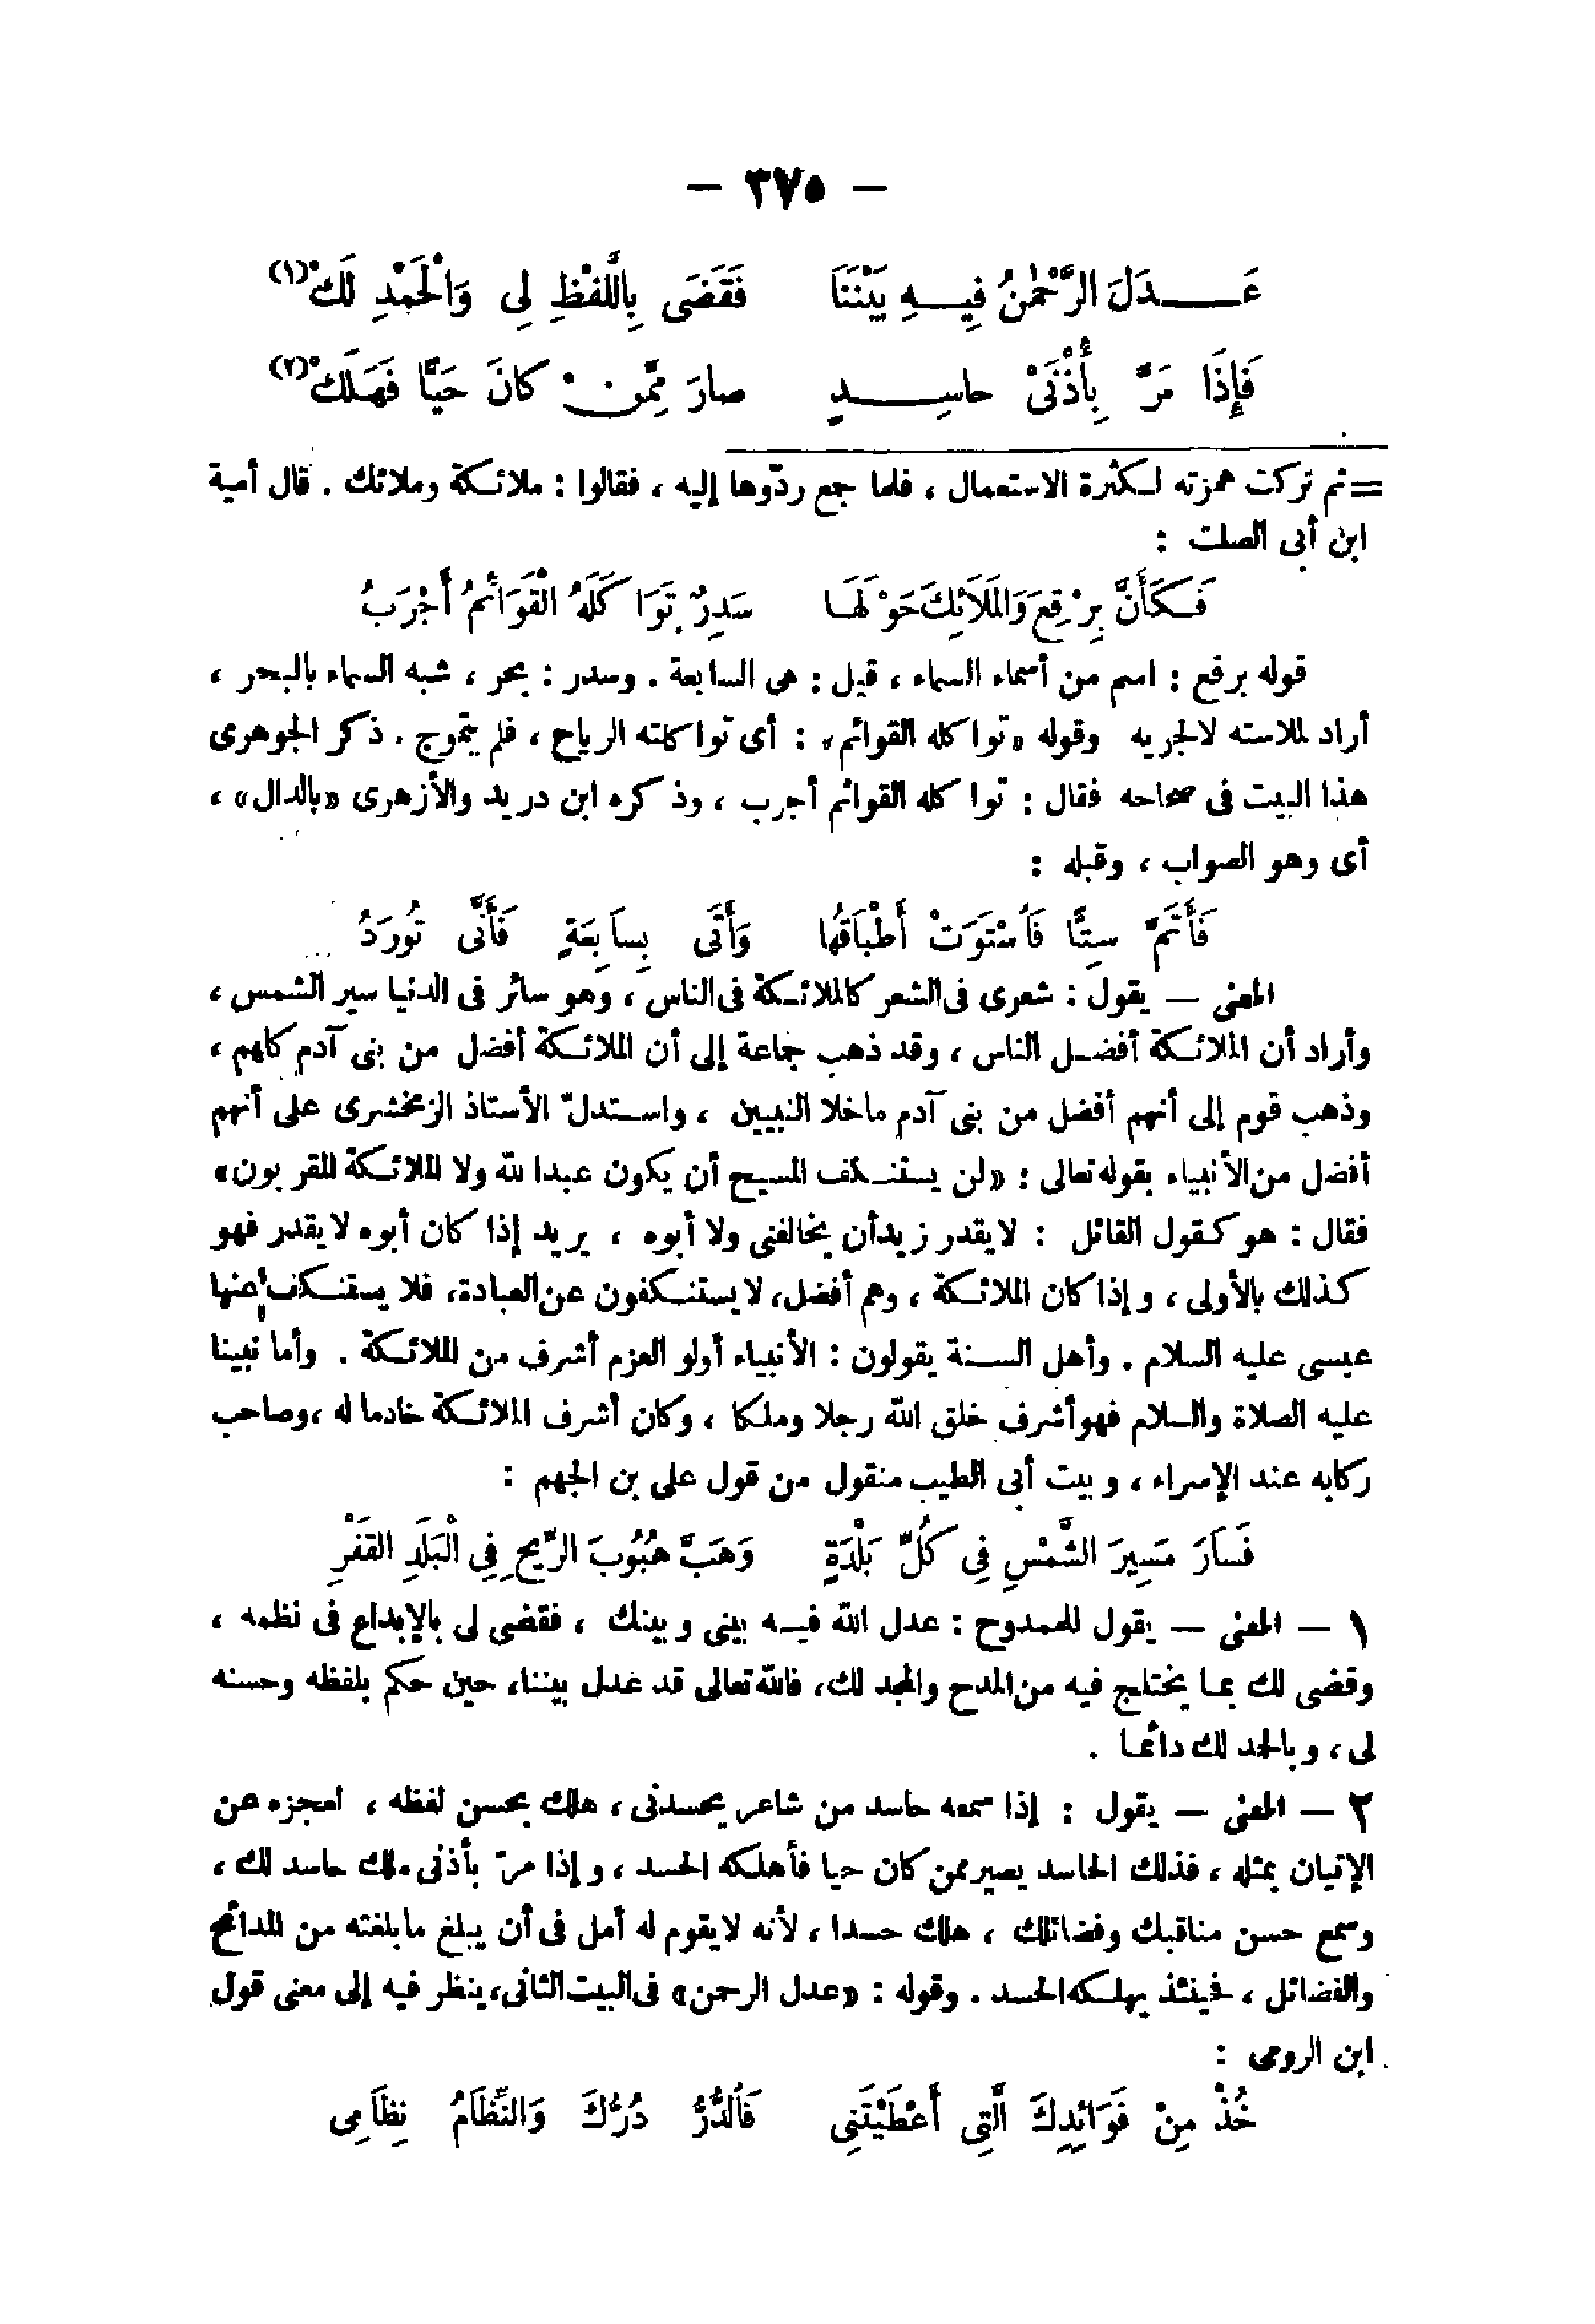 — ٣٧٥ —
عَـــدَلَ الرَّحْمٰنُ فِيـــهِ بَيْنَنَا فَقَضَى بِاللَّفْظِ لِى وَالْحَمْدِ لَكْ (١)
فَإِذَا مَرَّ بِأُذْنَىْ حاسِـــدٍ صارَ مِمَّنْ كانَ حَيًّا فَهَلَكْ (٢)
=ثم تركت همزته لـكثرة الاستعمال ، فلما جمع ردّوها إليه ، فقالوا : ملائـكة وملائك . قال أمية
ابن أبى الصلت :
فَـكَأَنَّ بِرْقِعَ وَالمَلَائِكَ حَوْلَهَـا سَدِرٌ تَوَاكَلَهُ الْقَوَائمُ أَجْرَبُ
قوله برقع : اسم من أسماء السماء ، قيل : هى السابعة . وسدر : بحر ، شبه السماء بالبحر ،
أراد لملاسته لالجريه وقوله «تواكله القوائم» : أى تواكلته الرياح ، فلم يتموج . ذكر الجوهرى
هذا البيت فى صحاحه فقال : تواكله القوائم أجرب ، وذكره ابن دريد والأزهرى «بالدال» ،
أى وهو الصواب ، وقبله :
فَأَتَمَّ سِتًّا فَاسْتَوَتْ أَطْبَاقُها وَأَتَى بِسابِعَةٍ فَأَنَّى تُورَدُ
المعنى — يقول : شعرى فى الشعر كالملائـكة فى الناس ، وهو سائر فى الدنيا سير الشمس ،
وأراد أن الملائـكة أفضـل الناس ، وقد ذهب جماعة إلى أن الملائـكة أفضل من بنى آدم كلهم ،
وذهب قوم إلى أنهم أفضل من بنى آدم ماخلا النبيين ، واسـتدلّ الأستاذ الزمخشرى على أنهم
أفضل من الأنبياء بقوله تعالى : «لن يستنـكف المسيح أن يكون عبدا لله ولا الملائـكة المقربون»
فقال : هو كـقول القائل : لايقدر زيدأن يخالفنى ولا أبوه ، يريد إذا كان أبوه لايقدر فهو
كذلك بالأولى ، وإذا كان الملائـكة ، وهم أفضل، لايستنـكفون عن العبادة، فلا يستنـكف عنها
عيسى عليه السلام . وأهل السـنة يقولون : الأنبياء أولو العزم أشرف من الملائـكة . وأما نبينا
عليه الصلاة والسلام فهوأشرف خلق الله رجلا وملكا ، وكان أشرف الملائـكة خادما له ،وصاحب
ركابه عند الإسراء ، وبيت أبى الطيب منقول من قول على بن الجهم :
فَسارَ مَسِيرَ الشَّمْسِ فِى كُلِّ بَلْدَةٍ وَهَبَّ هُبُوبَ الرِّيحِ فِى الْبَلَدِ القَفْرِ
١ — المعنى — يقول للممدوح : عدل الله فيـه بينى وبينك ، فقضى لى بالإبداع فى نظمه ،
وقضى لك بمـا يختلج فيه من المدح والمجد لك، فالله تعالى قد عدل بيننا، حين حكم بلفظه وحسنه
لى ، وبالحمد لك دائمـا .
٢ — المعنى — يقول : إذا سمعه حاسد من شاعر يحسدنى ، هلك بحسن لفظه ، لعجزه عن
الإتيان بمثله ، فذلك الحاسد يصير ممن كان حيا فأهلـكه الحسد ، وإذا مرّ بأذنى ملك حاسد لك ،
وسمع حسن مناقبك وفضائلك ، هلك حسدا ، لأنه لايقوم له أمل فى أن يبلغ مابلغته من المدائح
والفضائل ، فحينئذ يهلـكه الحسد . وقوله : «عدل الرحمن» فى البيت الثانى، ينظر فيه إلى معنى قول
ابن الرومى :
خُذْ مِنْ فَوَائِدِكَ الَّتِى أَعْطَيْتَنِى فَالدُّرُّ دُرُّكَ وَالنِّظَامُ نِظَامِى